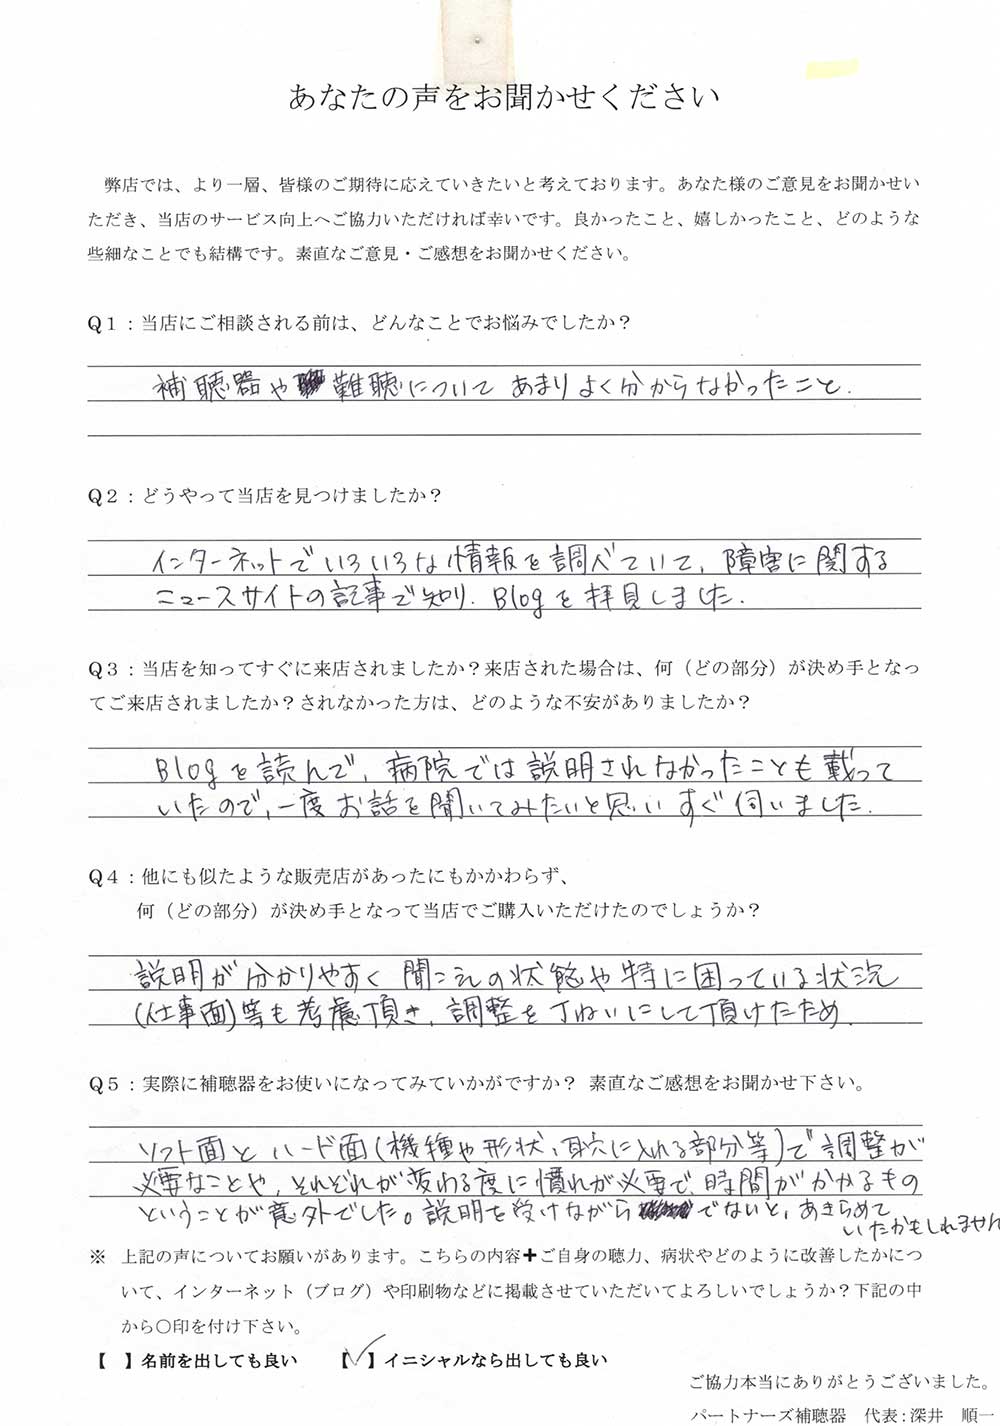 あなたの声をお聞かせください
弊店では、より一層、皆様のご期待に応えていきたいと考えております。あなた様のご意見をお聞かせい
ただき、当店のサービス向上へご協力いただければ幸いです。良かったこと、嬉しかったこと、どのような
些細なことでも結構です。素直なご意見・ご感想をお聞かせください。
Q1：当店にご相談される前は、どんなことでお悩みでしたか？
補聴器や難聴について あまりよく分からなかったこと.
Q2：どうやって当店を見つけましたか？
インターネットでいろいろな情報を調べていて、障害に関する
ニュースサイトの記事で知り、Blogを拝見しました.
Q3：当店を知ってすぐに来店されましたか？来店された場合は、何（どの部分）が決め手となっ
てご来店されましたか？されなかった方は、どのような不安がありましたか？
Blogを読んで、病院では説明されなかったことも載って
いたので、一度お話を聞いてみたいと思いすぐ伺いました.
Q4：他にも似たような販売店があったにもかかわらず、
何（どの部分）が決め手となって当店でご購入いただけたのでしょうか？
説明が分かりやすく 聞こえの状態や特に困っている状況
(仕事面)等も考慮頂き、調整を丁ねいにして頂けたため.
Q5：実際に補聴器をお使いになってみていかがですか？ 素直なご感想をお聞かせ下さい。
ソフト面とハード面(機種や形状、耳穴に入れる部分等)で調整が
必要なことや、それぞれが変わる度に慣れが必要で、時間がかかるもの
ということが意外でした。説明を受けながらでないと、あきらめて
いたかもしれません
※ 上記の声についてお願いがあります。こちらの内容＋ご自身の聴力、病状やどのように改善したかにつ
いて、インターネット（ブログ）や印刷物などに掲載させていただいてよろしいでしょうか？下記の中
から〇印を付け下さい。
【 】名前を出しても良い 【✓】イニシャルなら出しても良い
ご協力本当にありがとうございました。
パートナーズ補聴器 代表：深井 順一